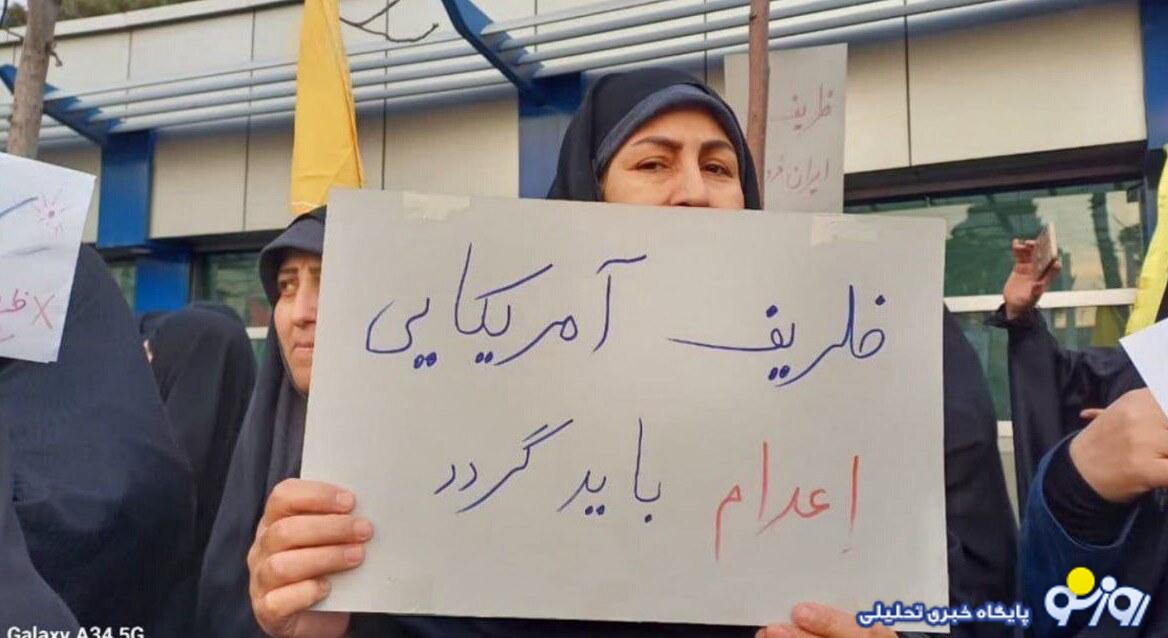 ظریف آمریکایی
اعدام باید گردد
ظریف
ایران
روزنو
پایگاه خبری تحلیلی
Galaxy A34 5G